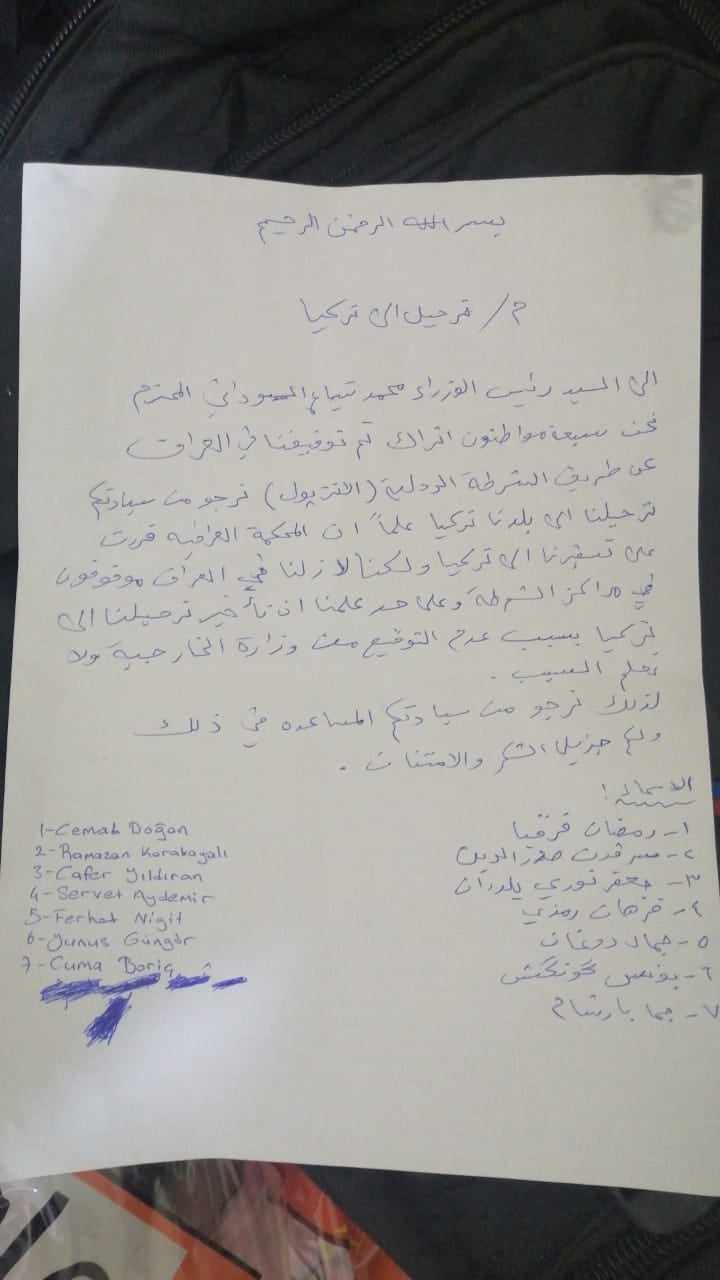 بسم الله الرحمن الرحيم
م/ ترحيل الى تركيا
الى السيد رئيس الوزراء محمد شياع السوداني المحترم
نحن سبعة مواطنون اتراك تم توقيفنا في العراق
عن طريق الشرطة الدولية (الانتربول) نرجو من سيادتكم
ترحيلنا الى بلدنا تركيا علماً ان المحكمة العراقية قررت
على تسفيرنا الى تركيا ولكننا لازلنا في العراق موقوفون
في مراكز الشرطة وعلى حد علمنا ان تأخير ترحيلنا الى
تركيا بسبب عدم التوقيع من وزارة الخارجية ولا
نعلم السبب .
لذلك نرجو من سيادتكم المساعده في ذلك
ولكم جزيل الشكر والامتنان .
الاسماء :
١- رمضان
٢-
٣- جعفر نوري يلدران
٤- فرهات رمزي
٥- جمال دوغان
٦- يونس
٧- جما بارتشام
1-Cemal Doğan
2-Ramazan Korabayalı
3-Cafer Yıldıran
4-Servet Aydemir
5-Ferhat Nigit
6-Yunus Güngör
7-Cuma